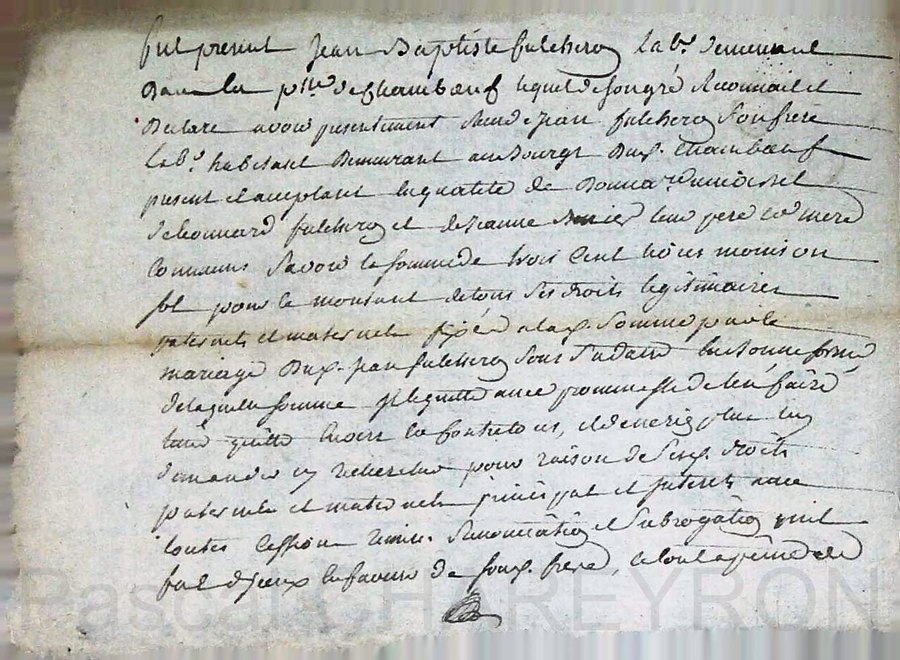 fut present Jean Baptiste fulchery Lab.r demeurant
Dans la p.sse de Chambœuf lequel de son gré Reconnait et
Declare avoir presentement Receu de Jean fulchery son frere
Lab.r habitant Demeurant au Bourg Dud. Chambœuf
present et acceptant en qualité de Donnataire universel
de Leonnard fulchery et de Jeanne leur pere et mere
Communs Savoir la somme de trois Cent livres moins un
sol pour le montant de tous ses droits legitimaires
paternels et maternels fixés a lad. Somme par le
mariage Dud. Jean fulchery sous Sadatte en bonne forme
de laquelle somme il le quitte avec promesse de len faire
tenir quitte Envers Et Contre tous, et de ne rien plus luy
demander ny rechercher pour raison de sesd. droits
paternels et maternels principal et interets avec
toutes Cession remise Renonciation et Subrogation quil
fait d'Jceux en faveur de sond. frere, le tout a peine de
Pascal CHAREYRON